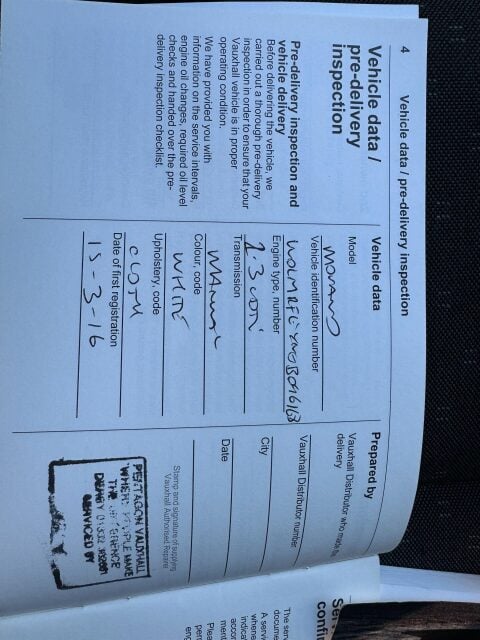 4 Vehicle data / pre-delivery inspection
Vehicle data /
pre-delivery
inspection
Pre-delivery inspection and
vehicle delivery
Before delivering the vehicle, we
carried out a thorough pre-delivery
inspection in order to ensure that your
Vauxhall vehicle is in proper
operating condition.
We have provided you with
information on the service intervals,
engine oil changes, required oil level
checks and handed over the pre-
delivery inspection checklist.
Vehicle data
Model
MOVANO
Vehicle identification number
Engine type, number
Transmission
MANUAL
Colour, code
WHITE
Upholstery, code
CLOTH
Date of first registration
15-3-16
Prepared by
Vauxhall Distributor who made the
delivery
Vauxhall Distributor number
City
Date
Stamp and signature of supplying
Vauxhall Authorised Repairer
PENTAGON VAUXHALL
WHERE PEOPLE MAKE
THE DIFFERENCE
DERBY
SERVICED BY
The
docume
A servi
whene
indica
acco
ment
Plea
per
eng